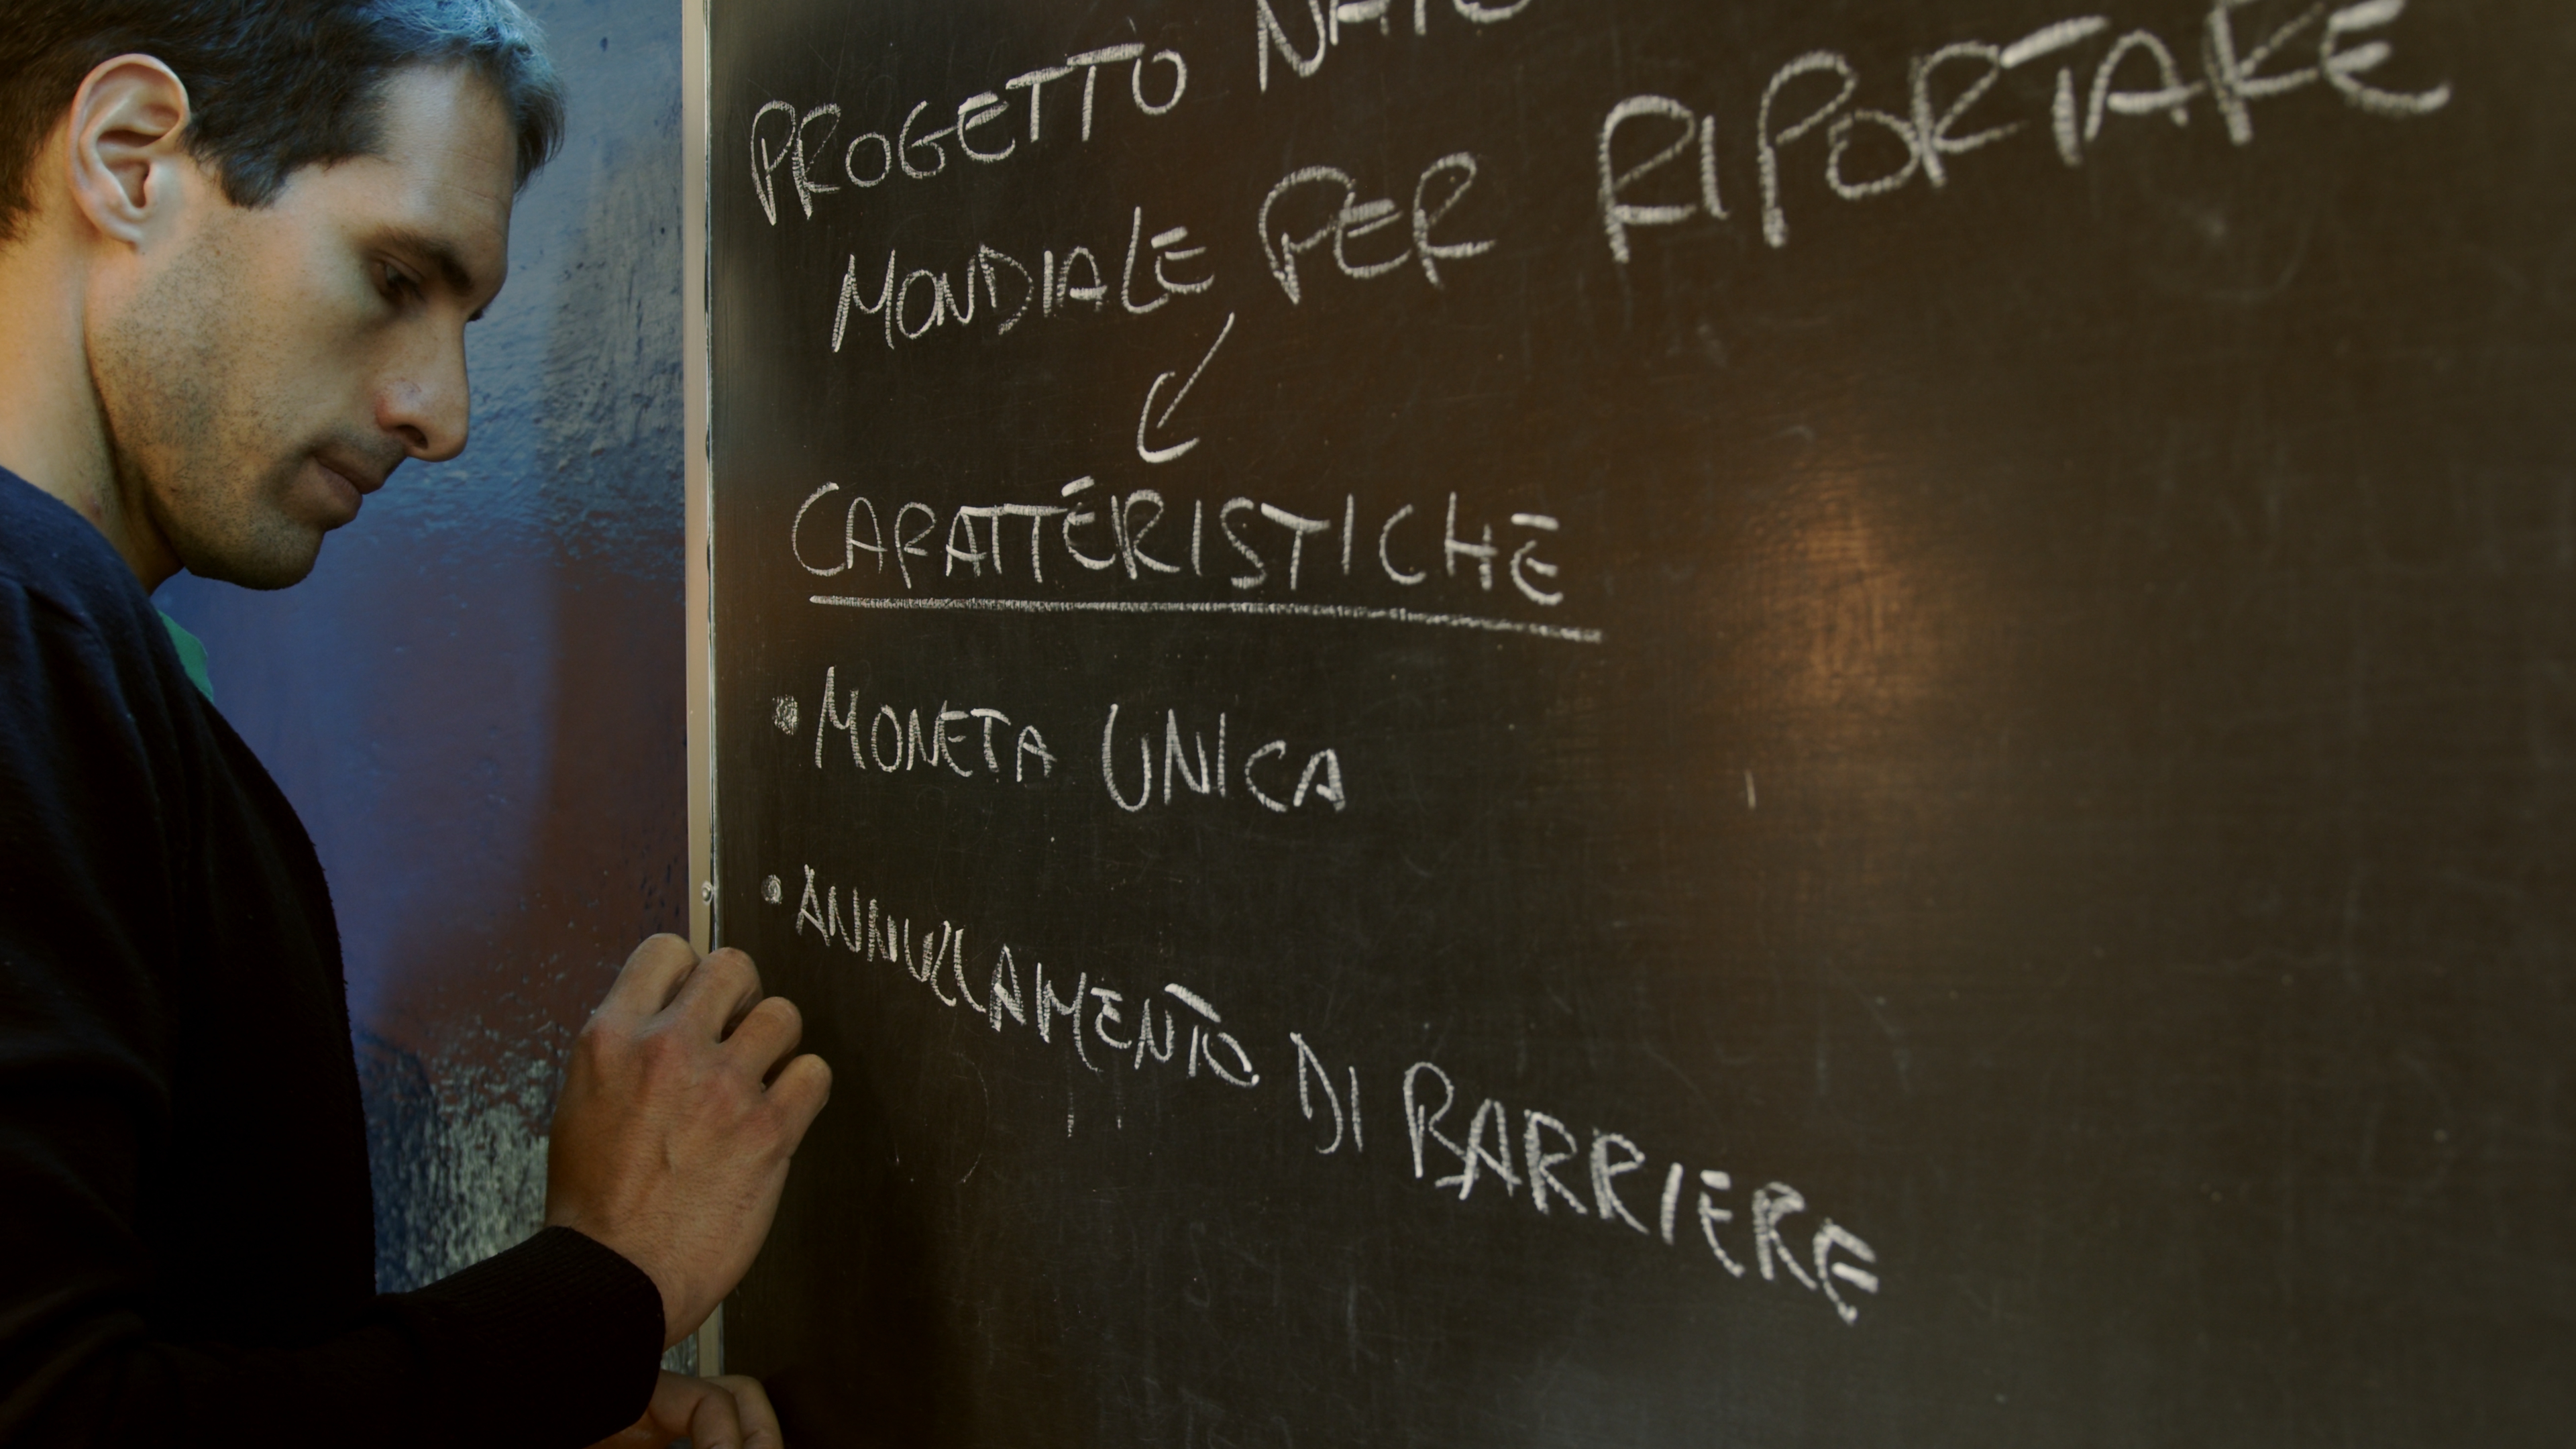 PROGETTO NATO
MONDIALE PER RIPORTARE
CARATTERISTICHE
• MONETA UNICA
• ANNULLAMENTO DI BARRIERE